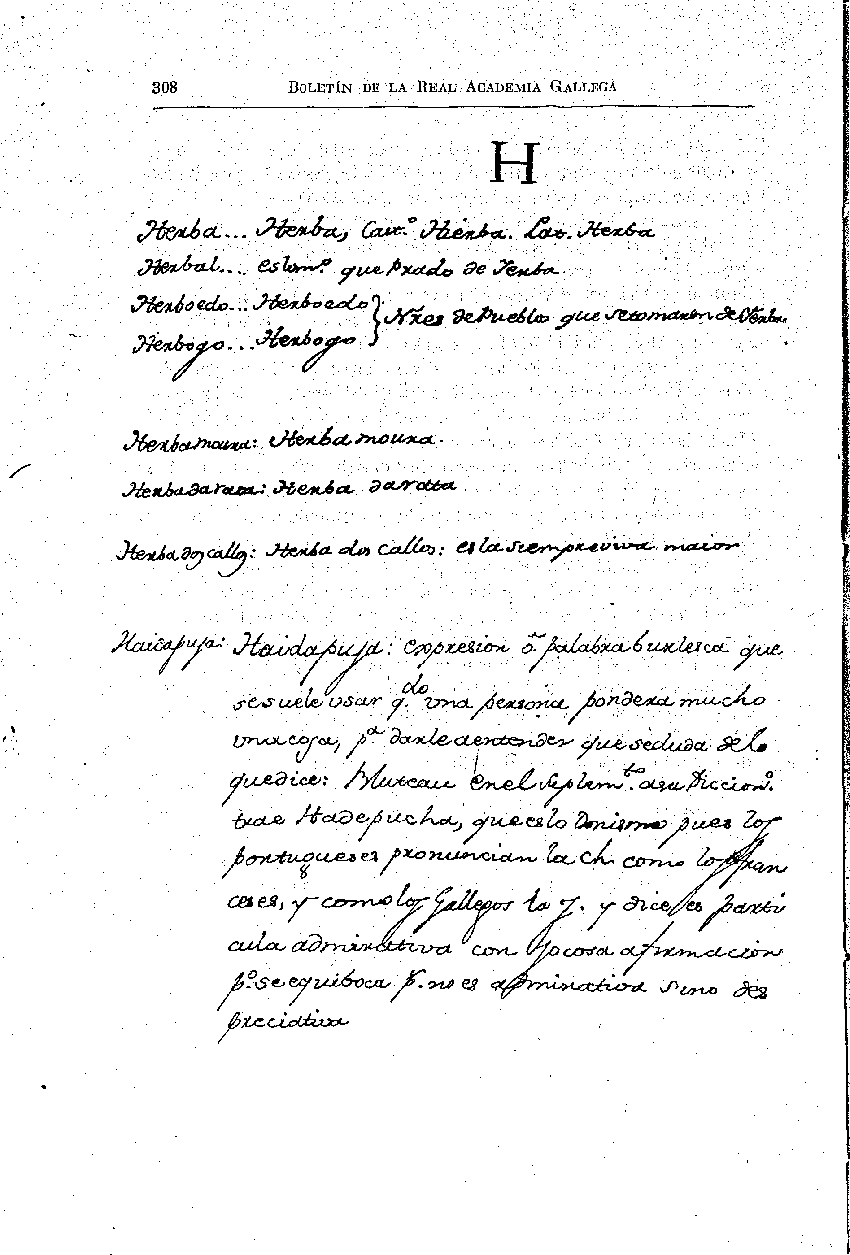 308 BOLETÍN DE LA REAL ACADEMIA GALLEGA
H
Herba... Herba, Cast.º Hierba. Lat. Herba
Herbal... es lo m.º que prado de Yerba
Herboedo... Herboedo
Nr̃es de Pueblos que se tomaron de Yerba.
Herbogo... Herbogo
Herbamoura: Herba moura.
Herbadarata: Herba da ratta
Herba dos callos: Herba dos callos: es la siempreviva maior
Haidapuja: Haidapuja: expresion ô palabra burlesca que
se suele usar q.do una persona pondera mucho
una cosa, p.a darle a entender que se duda de lo
que dice: Bluteau en el Suplem.to a su Diccion.º
trae Hadepucha, que es lo mismo pues los
portugueses pronuncian la ch como los fran
ceses, y como los Gallegos la j. y dice, es parti
cula admirativa con jocosa afirmacion
p.º se equiboca p.r no es admirativa sino des
preciativa